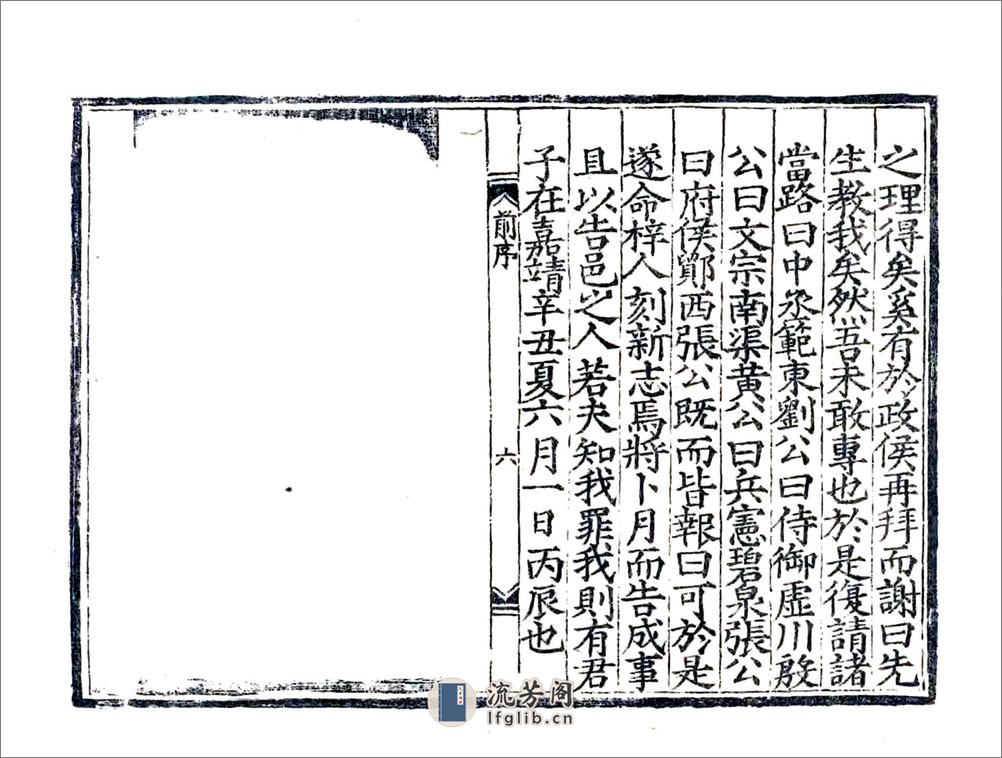 之理得矣奚有於政侯再拜而謝曰先
生教我矣然吾未敢專也於是復請諸
當路曰中丞範東劉公曰侍御虛川殷
公曰文宗南渠黃公曰兵憲碧泉張公
曰府侯鄖西張公既而皆報曰可於是
遂命梓人刻新志焉將卜月而告成事
且以告邑之人若夫知我罪我則有君
子在嘉靖辛丑夏六月一日丙辰也
前序
六
流芳阁
lfglib.cn